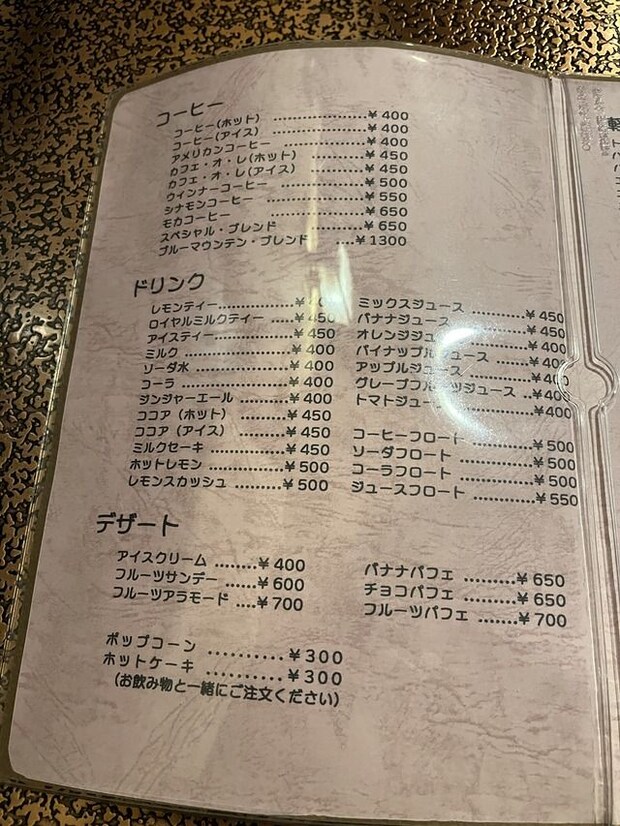 コーヒー
コーヒー(ホット) ……………… ¥400
コーヒー(アイス) ……………… ¥400
アメリカンコーヒー ……………… ¥400
カフェ・オ・レ(ホット) ………… ¥450
カフェ・オ・レ(アイス) ………… ¥450
ウインナーコーヒー ……………… ¥500
シナモンコーヒー ……………… ¥550
モカコーヒー ……………… ¥650
スペシャル・ブレンド ………… ¥650
ブルーマウンテン・ブレンド …. ¥1300
ドリンク
レモンティー …………
ロイヤルミルクティー …… ¥450
アイスティー ………… ¥450
ミルク ……………… ¥400
ソーダ水 ……………… ¥400
コーラ ……………… ¥400
ジンジャーエール ……… ¥400
ココア(ホット) ……… ¥450
ココア(アイス) ……… ¥450
ミルクセーキ ………… ¥450
ホットレモン ………… ¥500
レモンスカッシュ ……… ¥500
ミックスジュース ……… ¥450
バナナジュース ……… ¥450
オレンジジュース ……… ¥400
パイナップルジュース …… ¥400
アップルジュース ……… ¥400
グレープフルーツジュース … ¥400
トマトジュース ……… ¥400
コーヒーフロート ……… ¥500
ソーダフロート ……… ¥500
コーラフロート ……… ¥500
ジュースフロート ……… ¥550
デザート
アイスクリーム …….. ¥400
フルーツサンデー …… ¥600
フルーツアラモード …. ¥700
バナナパフェ ……… ¥650
チョコパフェ ……… ¥650
フルーツパフェ ……. ¥700
ポップコーン ………. ¥300
ホットケーキ ………. ¥300
(お飲み物と一緒にご注文ください)
軽